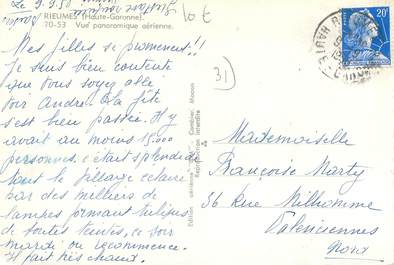 Le 9.9.50
RIEUMES (Haute-Garonne).
70-53 Vue panoramique aérienne.
Mes filles se promenent!!
Je suis bien contente
que tous soyez allé
voir André. La fête
s'est bien passée. Il y
avait au moins 15.000
personnes. c'était splendide
tout le village éclairé
par des milliers de
lampes formant tulipes
de toutes teintes, ce soir
mardi on recommence.
Il fait très chaud.
Édition aérienne
Combier Macon
Reproduction interdite
31
20F
Mademoiselle
Françoise Marty
36 Rue Milhomme
Valenciennes
Nord